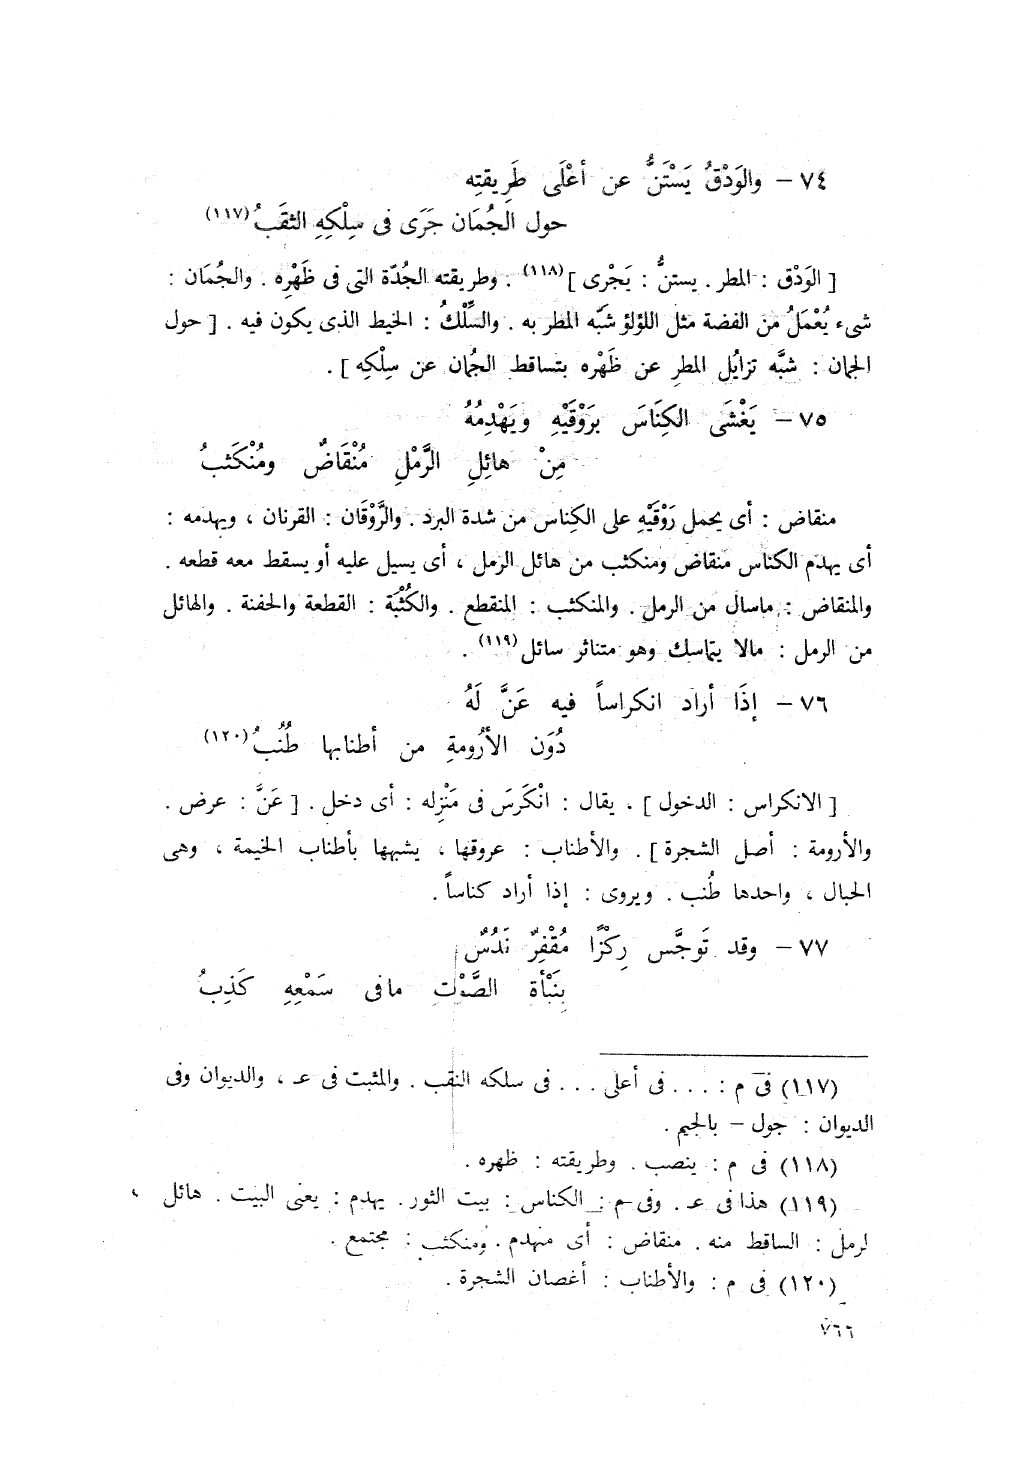 ٧٤ – والوَدْقُ يَسْتَنُّ عن أعْلَى طَرِيقتِه
حول الجُمَان جَرَى فى سِلْكِهِ الثقَبُ(١١٧)
[ الوَدْق : المطر . يستنُّ : يَجْرى ](١١٨) . وطريقته الجُدّة التى فى ظَهْرِه . والجُمَان :
شىء يُعْمَلُ من الفضة مثل اللؤلؤ شبّه المطر به . والسِّلْكُ : الخيط الذى يكون فيه . [ حول
الجمان : شبَّه تزايُل المطرِ عن ظَهْره بتساقط الجُمان عن سِلْكِه ] .
٧٥ – يَغْشَى الكِنَاسَ بَروْقَيْهِ ويَهْدِمُهُ
مِنْ هائِلِ الرَّمْلِ مُنْقَاضٌ ومُنْكَثبُ
منقاض : أى يحمل رَوْقَيْهِ على الكِناس من شدة البرد . والرَّوْقَان : القرنان ، ويهدمه :
أى يهدم الكناس منقاض ومنكثب من هائل الرمل ، أى يسيل عليه أو يسقط معه قطعه .
والمنقاض : ماسال من الرمل . والمنكثب : المنقطع . والكُثْبَة : القطعة والحفنة . والهائل
من الرمل : مالا يتماسك وهو متناثر سائل(١١٩) .
٧٦ – إذَا أراد انكراساً فيه عَنَّ لَهُ
دُوَن الأرُومةِ من أطنابها طُنُبُ(١٢٠)
[ الانكراس : الدخول ] ، يقال : انْكَرسَ فى مَنْزِله : أى دخل . [ عَنَّ : عرض .
والأرومة : أصل الشجرة ] . والأطناب : عروقها ، يشبهها بأطناب الخيمة ، وهى
الحبال ، واحدها طُنب . ويروى : إذا أراد كناساً .
٧٧ – وقد تَوجَّس رِكْزًا مُقْفِرٌ نَدُسٌ
بِنَبْأة الصَّوْتِ مافى سَمْعِهِ كَذِبُ
(١١٧) فى م : . . . فى أعلى . . . فى سلكه النقب . والمثبت فى عـ ، والديوان وفى
الديوان : جول – بالجيم .
(١١٨) فى م : ينصب . وطريقته : ظهره .
(١١٩) هذا فى عـ . وفى م : الكناس : بيت الثور . يهدم : يعنى البيت . هائل
لرمل : الساقط منه . منقاض : أى منهدم . ومنكثب : مجتمع .
(١٢٠) فى م : والأطناب : أغصان الشجرة .
٧٦٦